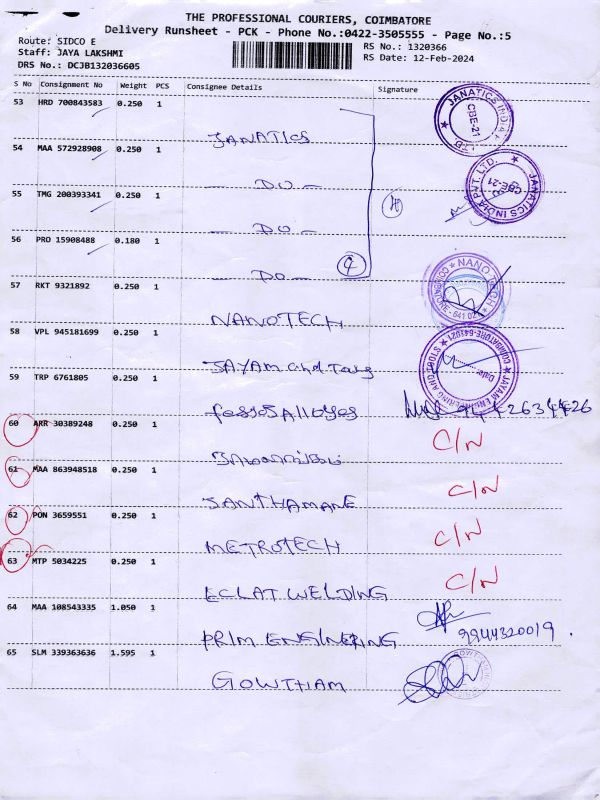 THE PROFESSIONAL COURIERS, COIMBATORE
Delivery Runsheet - PCK - Phone No.:0422-3505555 - Page No.:5
Route: SIDCO E
Staff: JAYA LAKSHMI
DRS No.: DCJB132036605
RS No.: 1320366
RS Date: 12-Feb-2024
S No Consignment No Weight PCS Consignee Details Signature
53 HRD 700843583 0.250 1
JANATICS
JANATICS INDIA
CBE-21
54 MAA 572928908 0.250 1
DO
JANATICS INDIA PVT. LTD.
CBE-21
55 TMG 200393341 0.250 1
DO
56 PRO 15908488 0.180 1
DO
4
57 RKT 9321892 0.250 1
NANOTECH
NANO TECH
COIMBATORE - 641 021
58 VPL 945181699 0.250 1
JAYAM and Tang
JAYAM ENGINEERING AND STORES
COIMBATORE-641021
Date:
59 TRP 6761805 0.250 1
60 ARR 30389248 0.250 1
C/N
61 MAA 863948518 0.250 1
SANTHAMANE
C/N
62 PON 3659551 0.250 1
METROTECH
C/N
63 MTP 5034225 0.250 1
ECLAT WELDING
C/N
64 MAA 108543335 1.050 1
PRIM ENGINERING
9944320019.
65 SLM 339363636 1.595 1
GOWTHAM